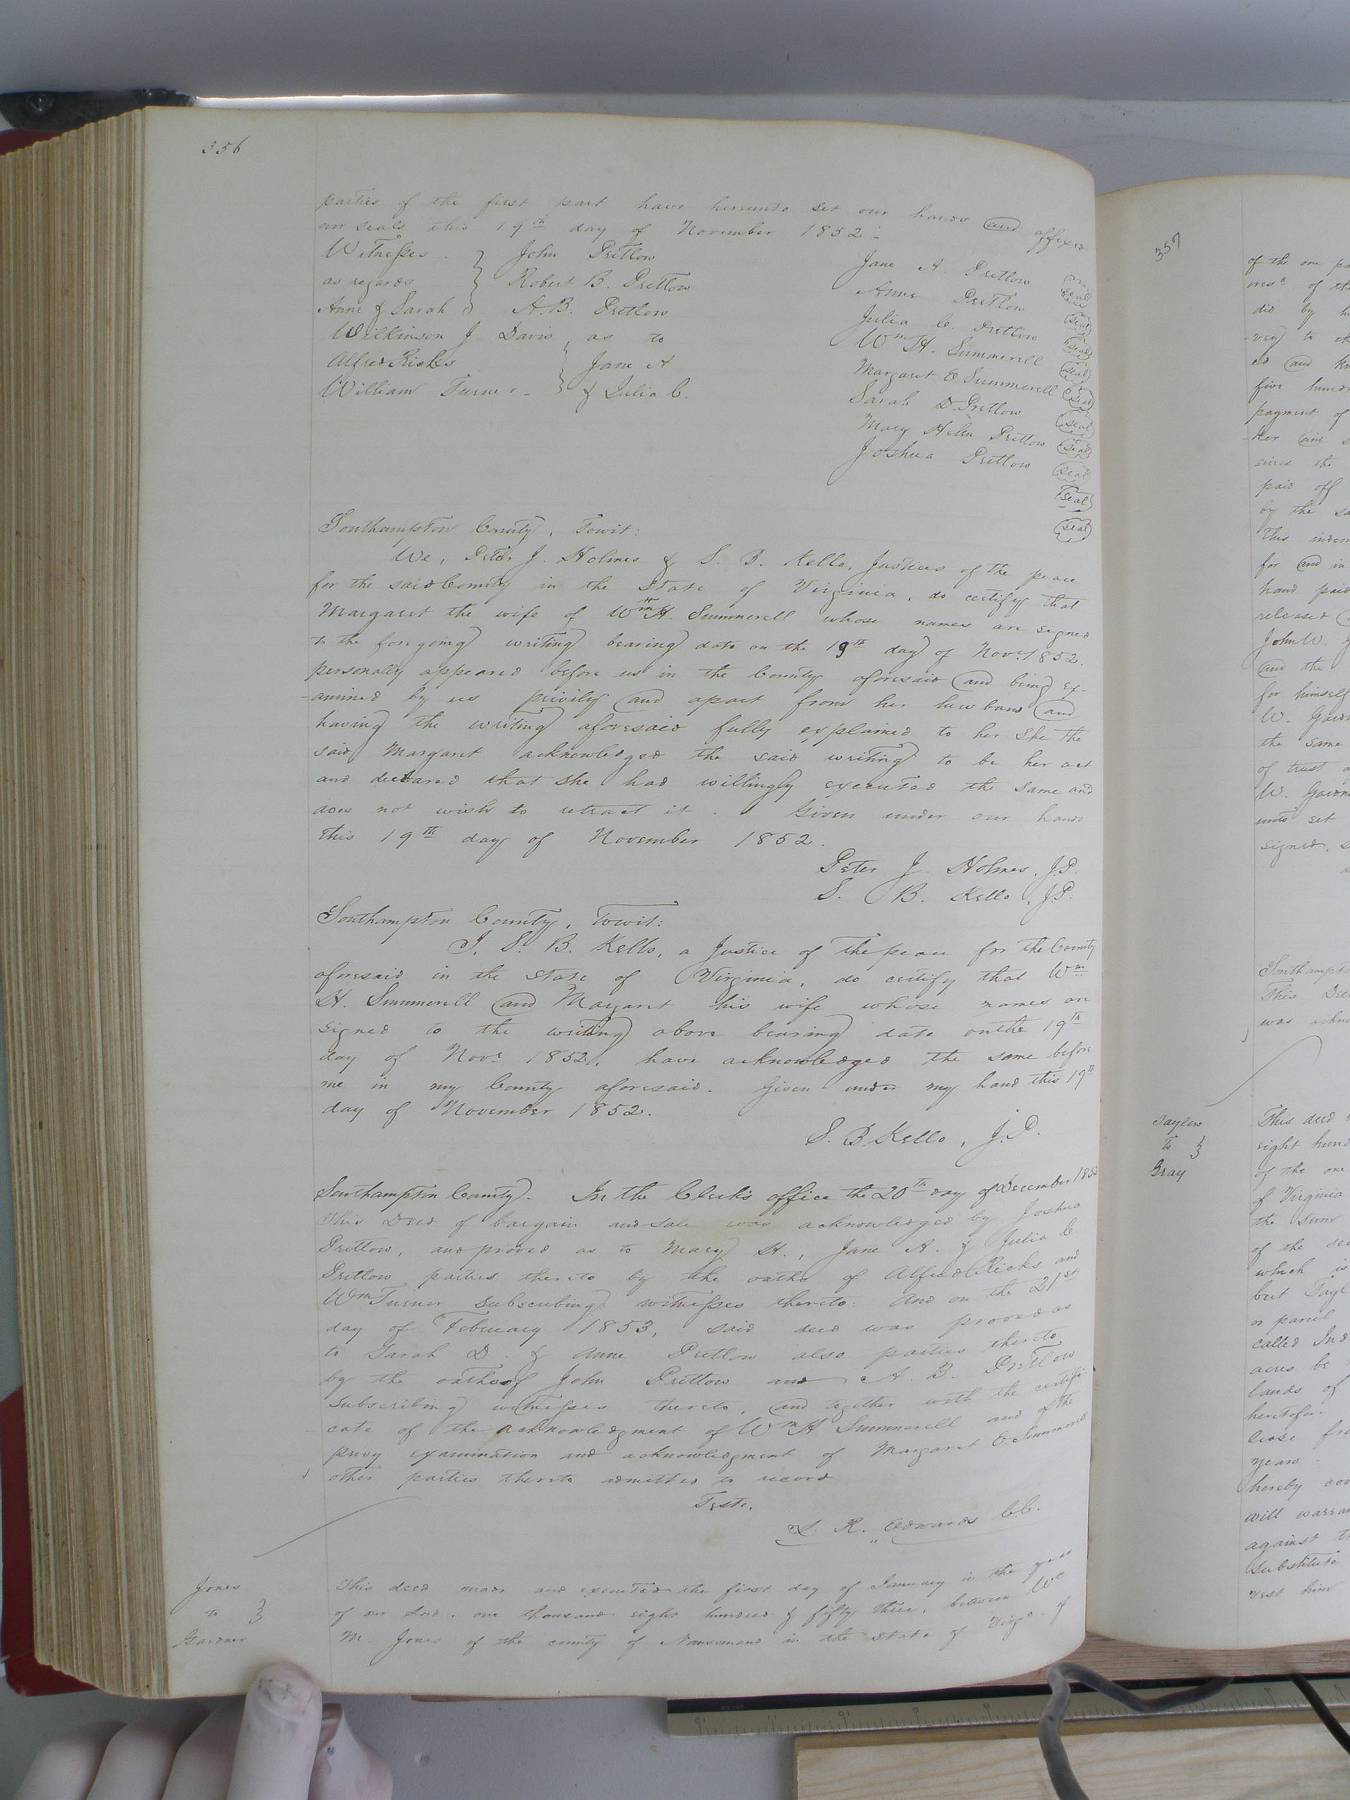 356
parties of the first part have hereunto set our hands and affixed
our seals this 19th day of November 1852.
Witnesses } John Pretlow
as regards } Robert B. Pretlow
Anne & Sarah } A. B. Pretlow
Wilkinson J Davis, as to
Alfred Ricks } Jane A
William Turner } & Julia C.
Jane A. Pretlow seal
Anne Pretlow seal
Julia C. Pretlow seal
Wm H. Summerell seal
Margaret E Summerell seal
Sarah D. Pretlow seal
Mary Helen Pretlow seal
Joshua Pretlow seal
seal
seal
Southampton County, Towit:
We, Peter J. Holmes & S. B. Kello, Justices of the peace
for the said County in the State of Virginia, do certify that
Margaret the wife of Wm H. Summerell whose names are signed
to the foregoing writing bearing date on the 19th day of Novr 1852.
personally appeared before us in the County aforesaid and being ex-
-amined by us privily and apart from her husband and
having the writing aforesaid fully explained to her she the
said Margaret acknowledged the said writing to be her act
and declared that she had willingly executed the same and
does not wish to retract it. Given under our hands
this 19th day of November 1852.
Peter J Holmes. J.P.
S. B. Kello, J.P.
Southampton County, Towit:
I, S. B. Kello, a Justice of the peace for the County
aforesaid in the State of Virginia, do certify that Wm
H. Summerell and Margaret his wife whose names are
signed to the writing above bearing date on the 19th
day of Novr 1852, have acknowledged the same before
me in my County aforesaid. Given under my hand this 19th
day of November 1852.
S. B. Kello, J.P.
Southampton County. In the Clerk's office the 20th day of December 1852
This Deed of bargain and sale was acknowledged by Joshua
Pretlow, and proved as to Mary H., Jane A. & Julia C
Pretlow parties thereto by the oaths of Alfred Ricks and
Wm Turner subscribing witnesses thereto: And on the 21st
day of February 1853, said deed was proved as
to Sarah D. & Anne Pretlow also parties thereto
by the oaths of John Pretlow and A. B. Pretlow
subscribing witnesses thereto, and together with the certifi
cate of the acknowledgment of Wm H Summerell and of the
privy examination and acknowledgment of Margaret E Summerell
other parties thereto admitted to record
Teste,
L R. Edwards CC.
Jones
to
Gardner
This deed made and executed the first day of January in the year
of our Lord, one thousand eight hundred & fifty three, between Wm
M. Jones of the county of Nansemond in the State of Virga of
357
of the one
of the
did by
to the
and
five
payment of
her and
since the
paid off
by the
This
for and in
hand paid
released
John W.
and the
for himself
W.
the same
of trust
W.
unto set
signed,
This
was
Taylor
to
Gray
This deed
eight
of the one
of Virginia
the sum
of the
which is
but
or parcel
called
acres be
lands of
lease
years
hereby
will
against
substitute